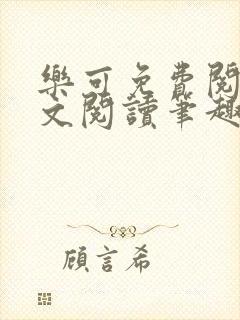 樂可免費閱
文閱讀筆趣
顧言希